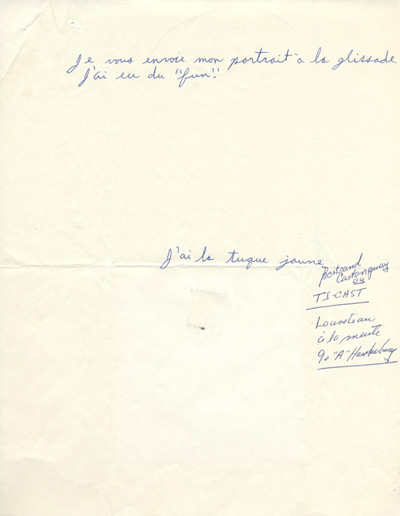 Je vous envoie mon portrait à la glissade
J'ai eu du "fun".
J'ai la tuque jaune
Bertrand
Castonguay
ou
TI-CAST
Louveteau
à la meute
9e "A" Hawkesbury